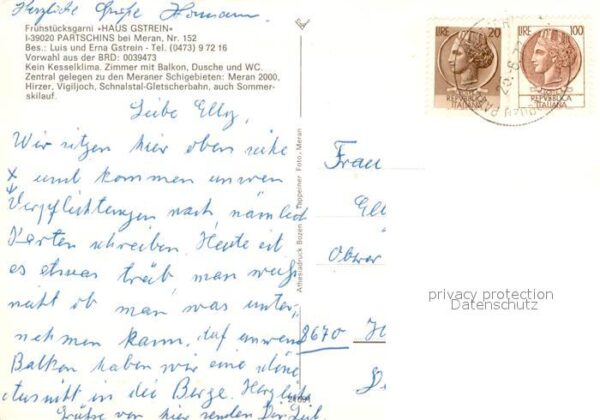 Herzliche Grüße Hermann.
Frühstücksgarni «HAUS GSTREIN»
I-39020 PARTSCHINS bei Meran, Nr. 152
Bes.: Luis und Erna Gstrein - Tel. (0473) 9 72 16
Vorwahl aus der BRD: 0039473
Kein Kesselklima. Zimmer mit Balkon, Dusche und WC.
Zentral gelegen zu den Meraner Schigebieten: Meran 2000,
Hirzer, Vigiljoch, Schnalstal-Gletscherbahn, auch Sommer-
skilauf.
LIRE 20
REPVBBLICA
ITALIANA
LIRE 100
REPVBBLICA
ITALIANA
Liebe Elly,
Wir sitzen hier oben
und kommen unseren
Verpflichtungen nach, nämlich
Karten schreiben. Heute ist
es etwas trüb, man weiß
nicht ob man was unter-
nehmen kann. Auf unserem
Balkon haben wir eine schöne
in die Berge. Herzliche
Grüße von hier senden Dir
Athesiadruck Bozen
Tappeiner Foto, Meran
Frau
Ell
8670
privacy protection
Datenschutz